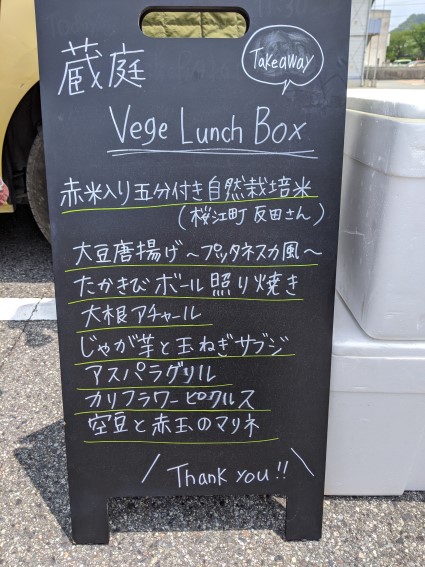 蔵庭
Takeaway
Vege Lunch Box
赤米入り五分付き自然栽培米
(桜江町 反田さん)
大豆唐揚げ～プッタネスカ風～
たかきびボール照り焼き
大根アチャール
じゃが芋と玉ねぎサブジ
アスパラグリル
カリフラワーピクルス
空豆と赤玉のマリネ
Thank you!!